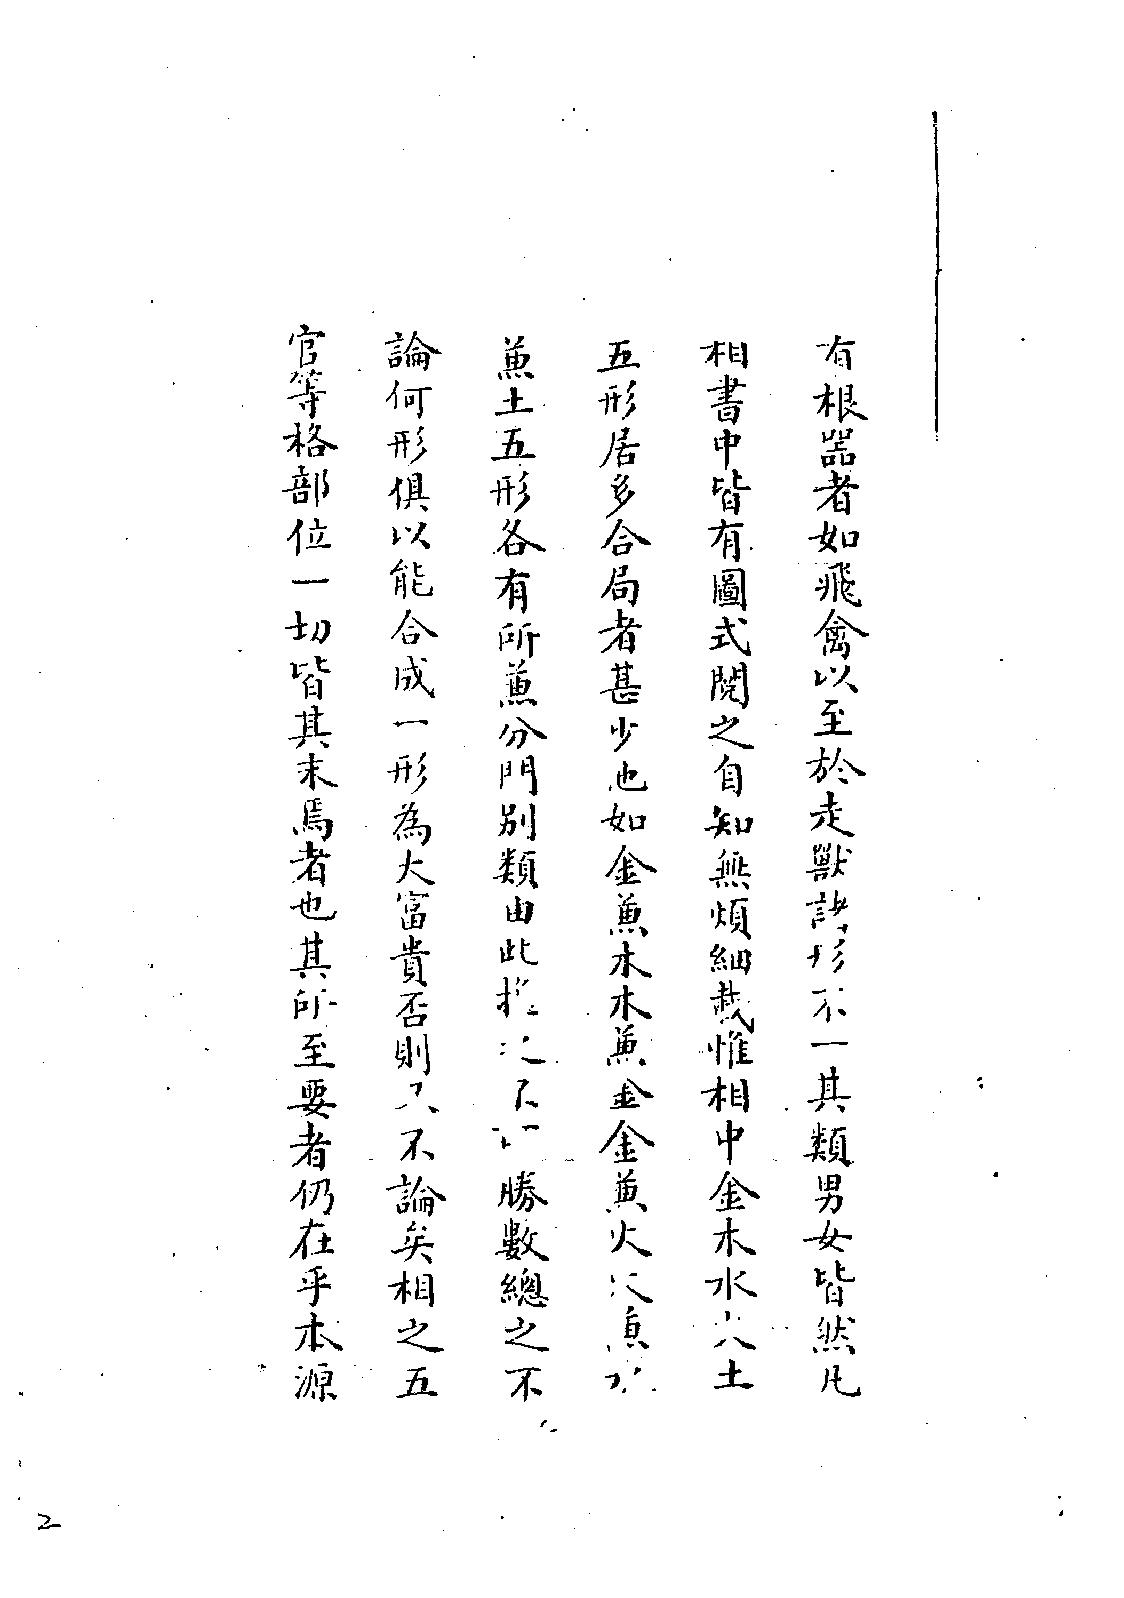 有根器者如飛禽以至於走獸諸形不一其類男女皆然凡
相書中皆有圖式閱之自知無煩細載惟相中金木水火土
五形居多合局者甚少也如金兼木木兼金金兼火火兼
兼土五形各有所兼分門別類由此推之不 勝數總之不
論何形俱以能合成一形為大富貴否則又不論矣相之五
官等格部位一切皆其末焉者也其所至要者仍在乎本源
2